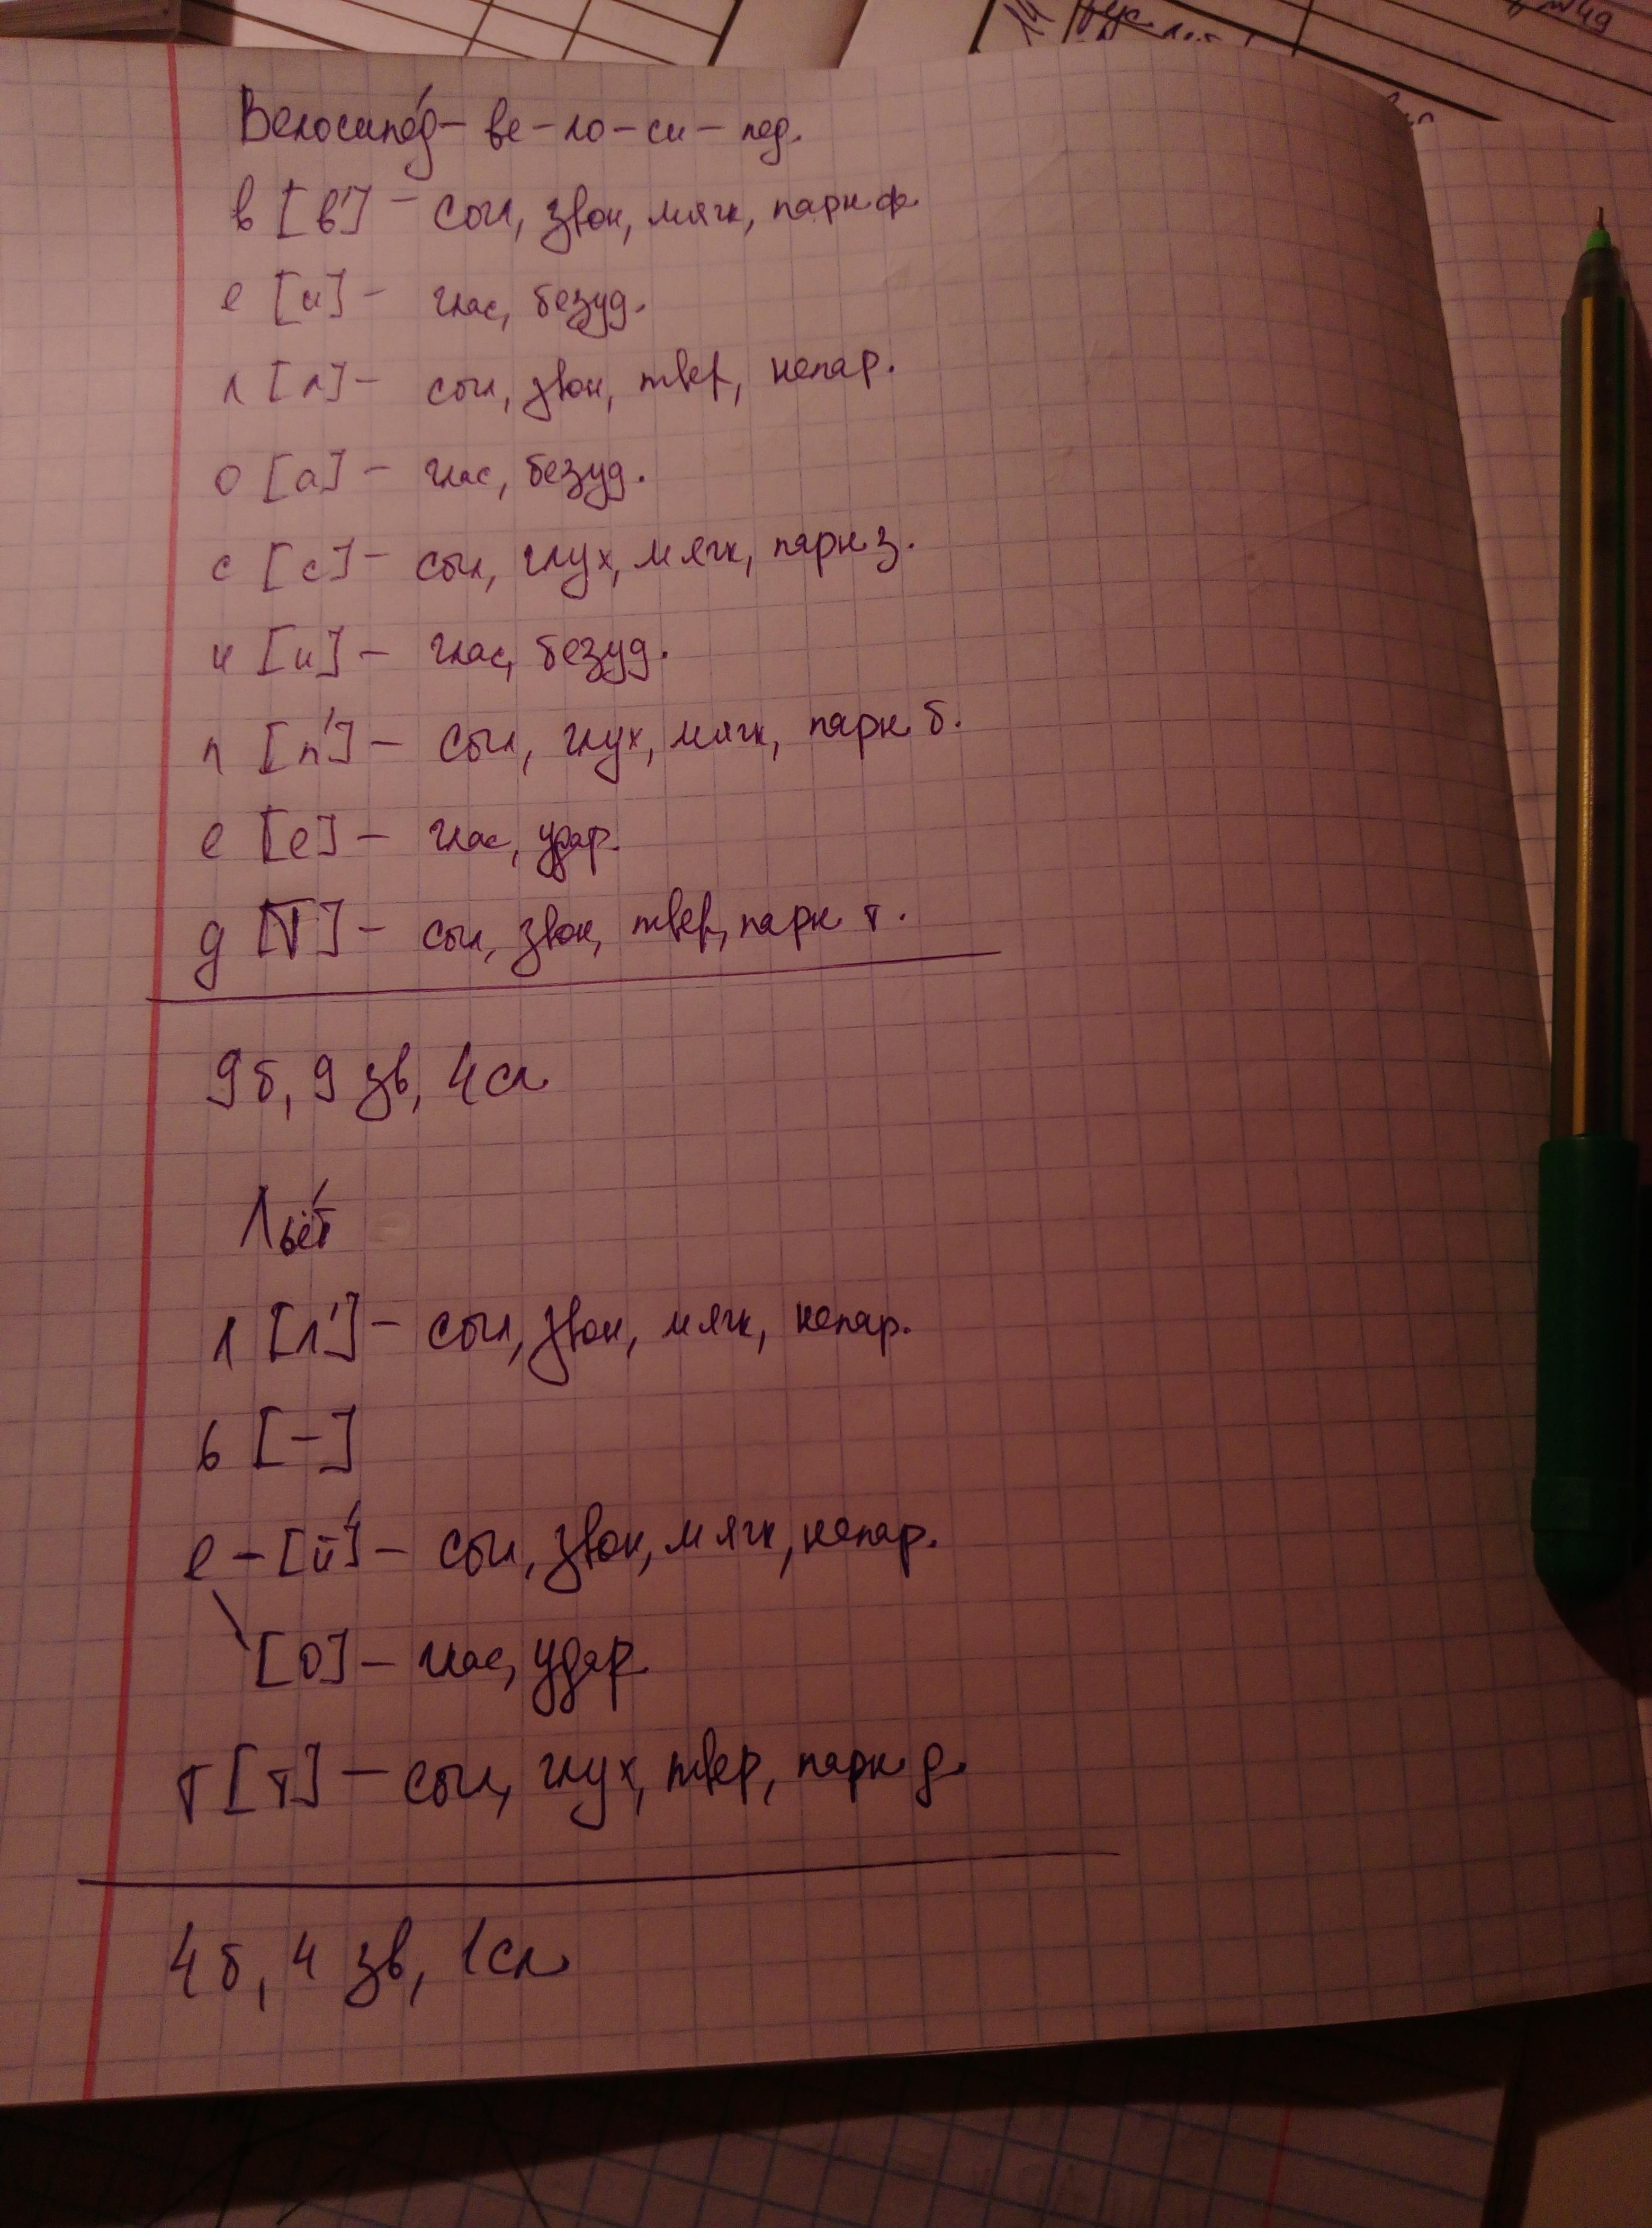 Велосипе́д – ве-ло-си-пед.
в [в'] – согл, звон, мягк, парн ф.
е [и] – глас, безуд.
л [л] – согл, звон, твер, непар.
о [а] – глас, безуд.
с [с] – согл, глух, мягк, парн з.
и [и] – глас, безуд.
п [п'] – согл, глух, мягк, парн б.
е [е] – глас, удар.
д [т] – согл, звон, твер, парн т.
9 б, 9 зв, 4 сл.
Льёт
л [л'] – согл, звон, мягк, непар.
ь [–]
е – [й'] – согл, звон, мягк, непар.
[о] – глас, удар.
т [т] – согл, глух, твер, парн д.
4 б, 4 зв, 1 сл.
14